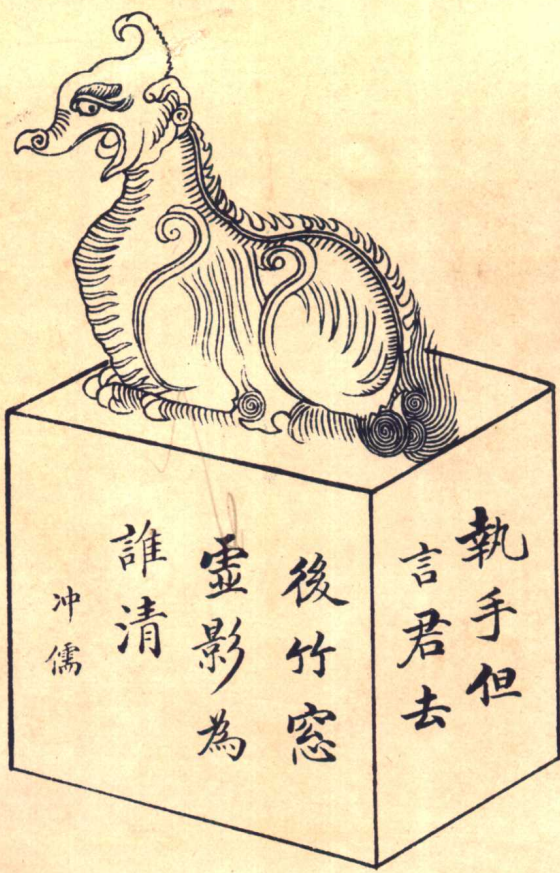 執手但
言君去
後竹窓
虛影為
誰清
冲儒